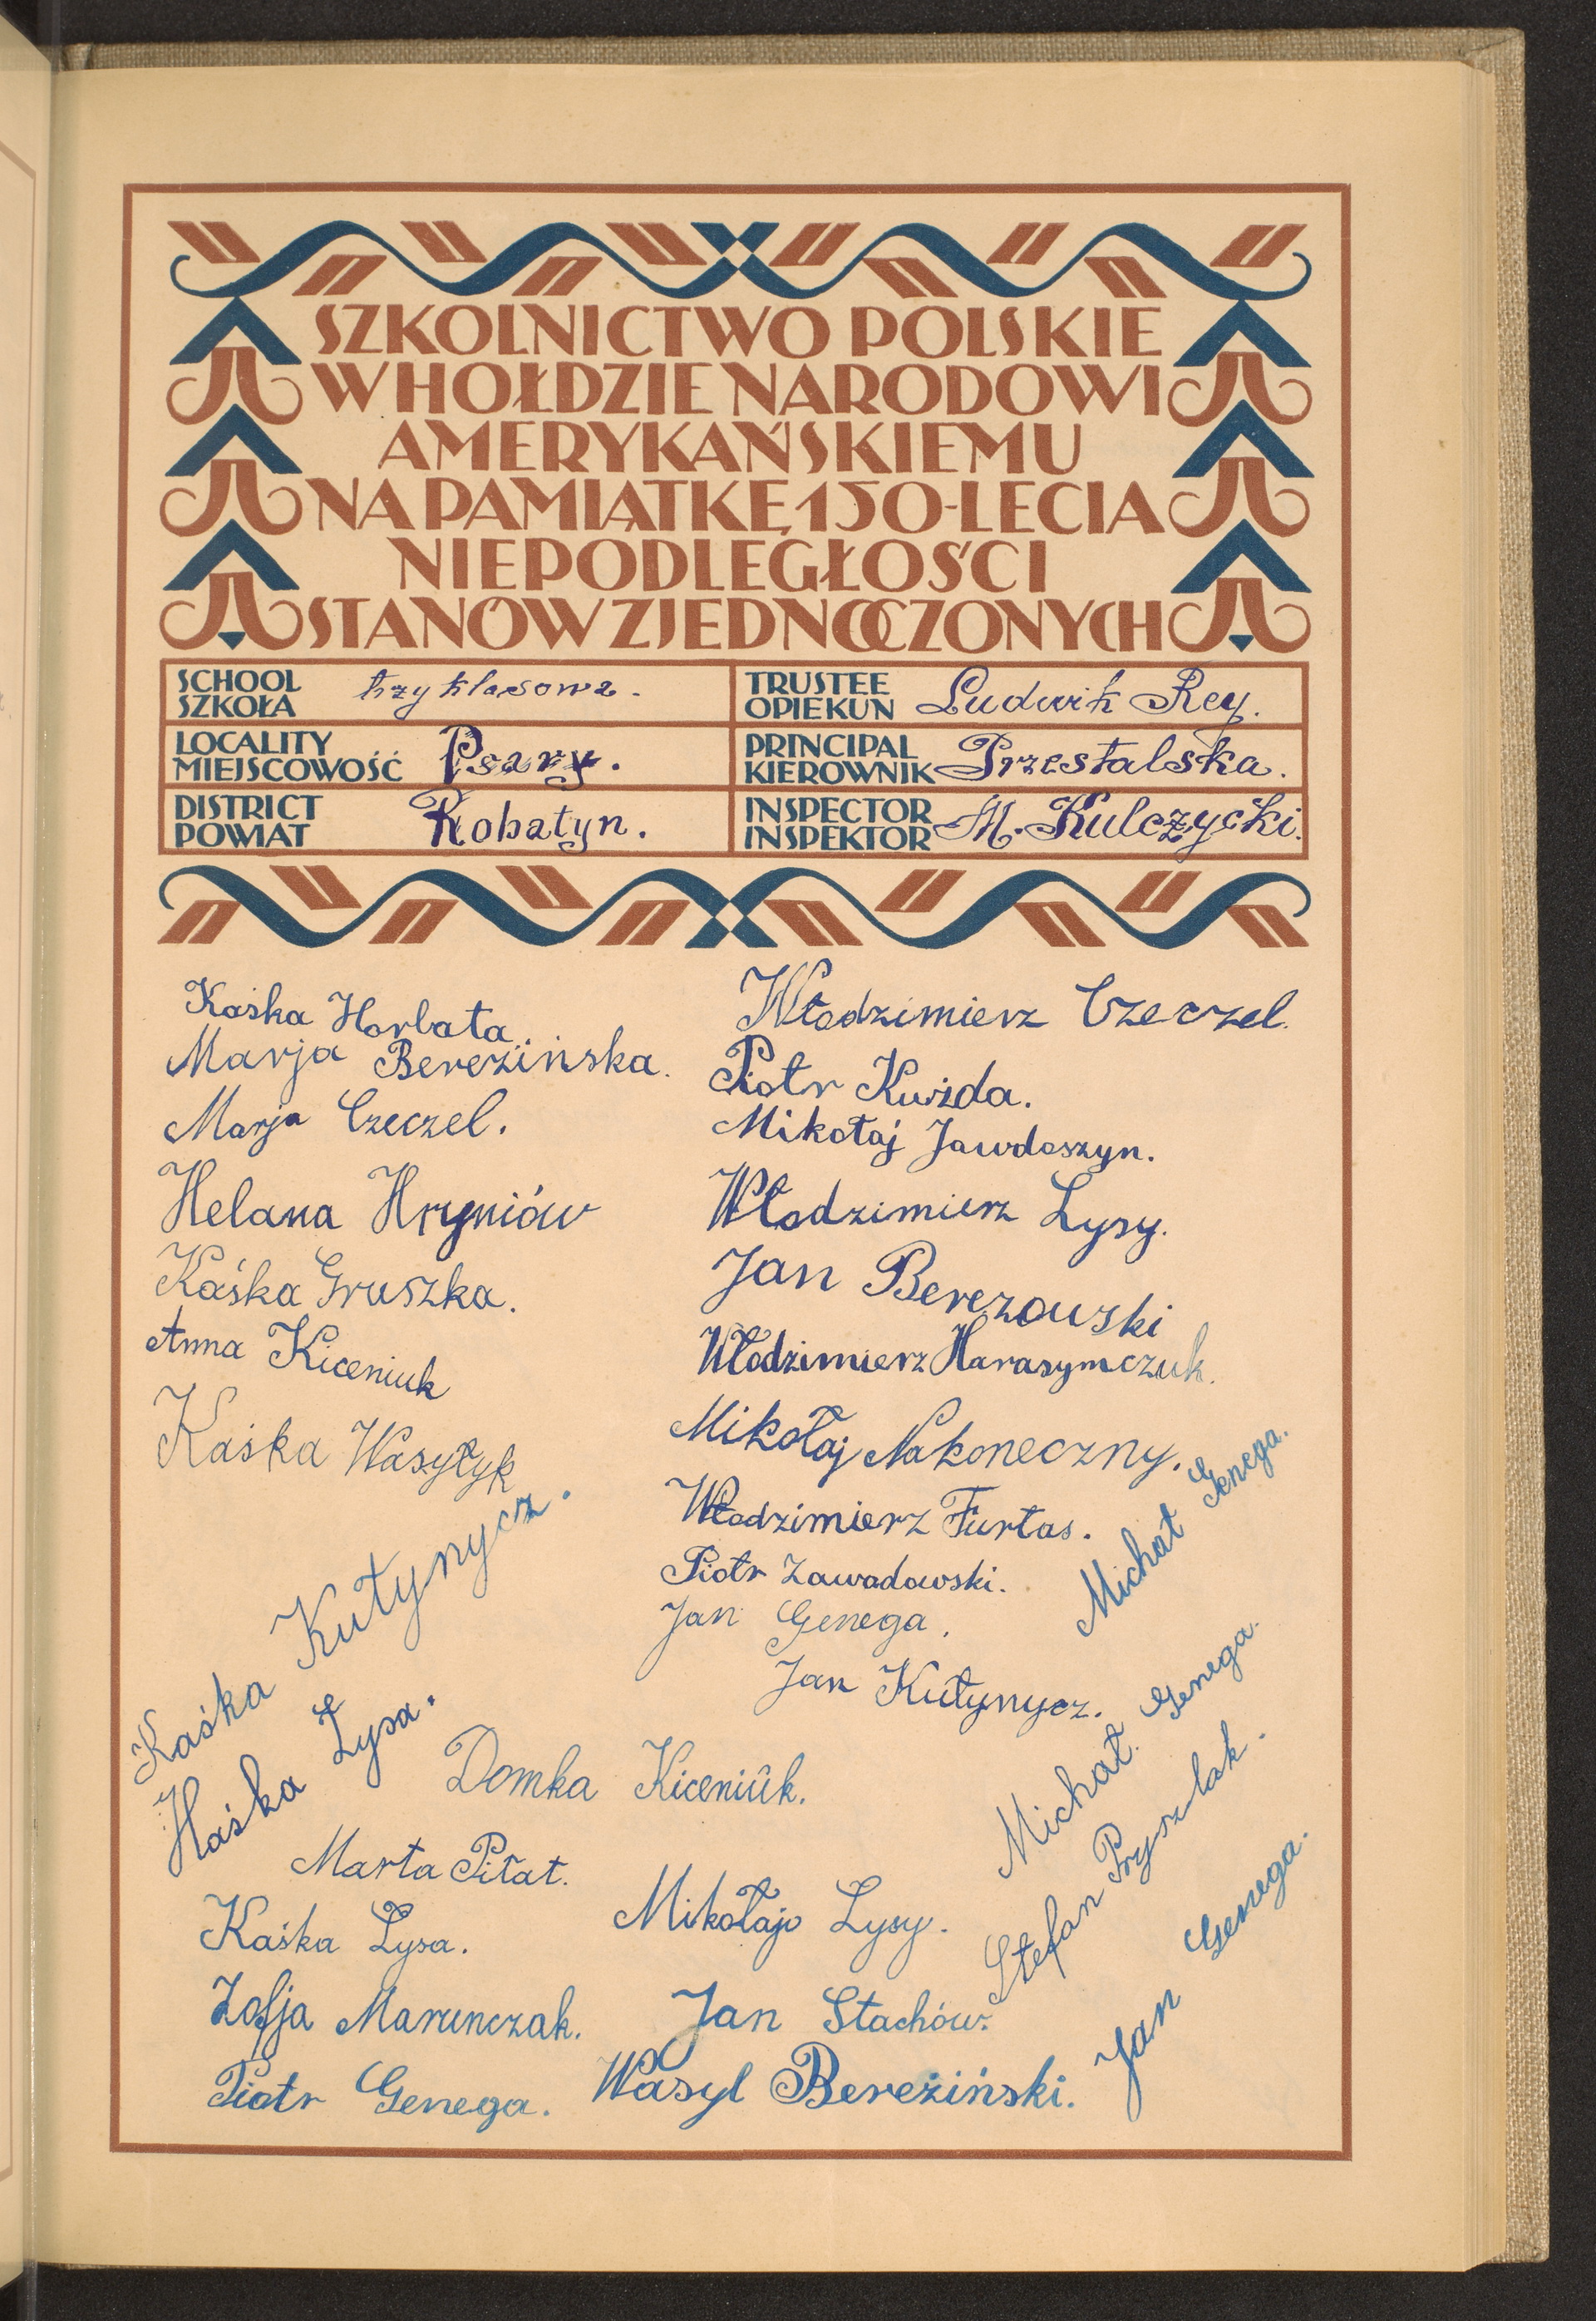 SZKOLNICTWO POLSKIE
W HOŁDZIE NARODOWI
AMERYKAŃSKIEMU
NA PAMIĄTKĘ 150-LECIA
NIEPODLEGŁOŚCI
STANÓW ZJEDNOCZONYCH
SCHOOL
SZKOŁA
trzyklasowa.
TRUSTEE
OPIEKUN
Ludwik Rey.
LOCALITY
MIEJSCOWOŚĆ
Psary.
PRINCIPAL
KIEROWNIK
Przestalska.
DISTRICT
POWIAT
Rohatyn.
INSPECTOR
INSPEKTOR
M. Kulczycki.
Kaśka Horbata
Marja Bereźińska.
Marja Czeczel.
Helana Hryniów
Kaśka Gruszka.
Anna Kiceniuk
Kaśka Wasyłyk
Kaśka Kutynycz.
Haśka Łysa.
Domka Kiceniuk.
Marta Piłat.
Kaśka Łysa.
Zofja Marunczak.
Piotr Genega.
Włodzimierz Czeczel.
Piotr Kużda.
Mikołaj Jawdoszyn.
Włodzimierz Łysy.
Jan Berezowski
Włodzimierz Harasymczuk.
Mikołaj Nakoneczny.
Włodzimierz Furtas.
Piotr Zawadowski.
Jan Genega.
Jan Kutynycz.
Michał Genega.
Michał Genega.
Stefan Pryszlak.
Jan Genega.
Mikołaj Łysy.
Jan Stachów.
Wasyl Bereżiński.